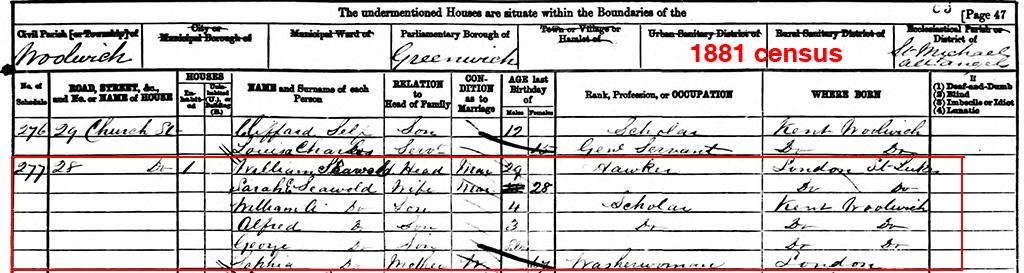 The undermentioned Houses are situate within the Boundaries of the
[Page 47
Civil Parish [or Township] of
City or Municipal Borough of
Municipal Ward of
Parliamentary Borough of
Town or Village or Hamlet of
Urban Sanitary District of
Rural Sanitary District of
Ecclesiastical Parish or District of
Woolwich
Greenwich
1881 census
St Michael
all angels
No. of Schedule
ROAD, STREET, &c., and No. or NAME of HOUSE
HOUSES
Inhabited
Uninhabited (U.), or Building (B.)
NAME and Surname of each Person
RELATION to Head of Family
CONDITION as to Marriage
AGE last Birthday of
Males
Females
Rank, Profession, or OCCUPATION
WHERE BORN
If
(1) Deaf-and-Dumb
(2) Blind
(3) Imbecile or Idiot
(4) Lunatic
276 29 Church St Clifford Self Son 12 Scholar Kent Woolwich
Louisa Servt 15 Genl Servant Do Do
277 28 Do 1 William Seawold Head Mar 29 Hawker London St Lukes
Sarah E Seawold Wife Mar 28 Do Do
William A Do Son 4 Scholar Kent Woolwich
Alfred Do Son 3 Do Do Do
George Do Son Do Do
Sophia Do Mother W Washerwoman London